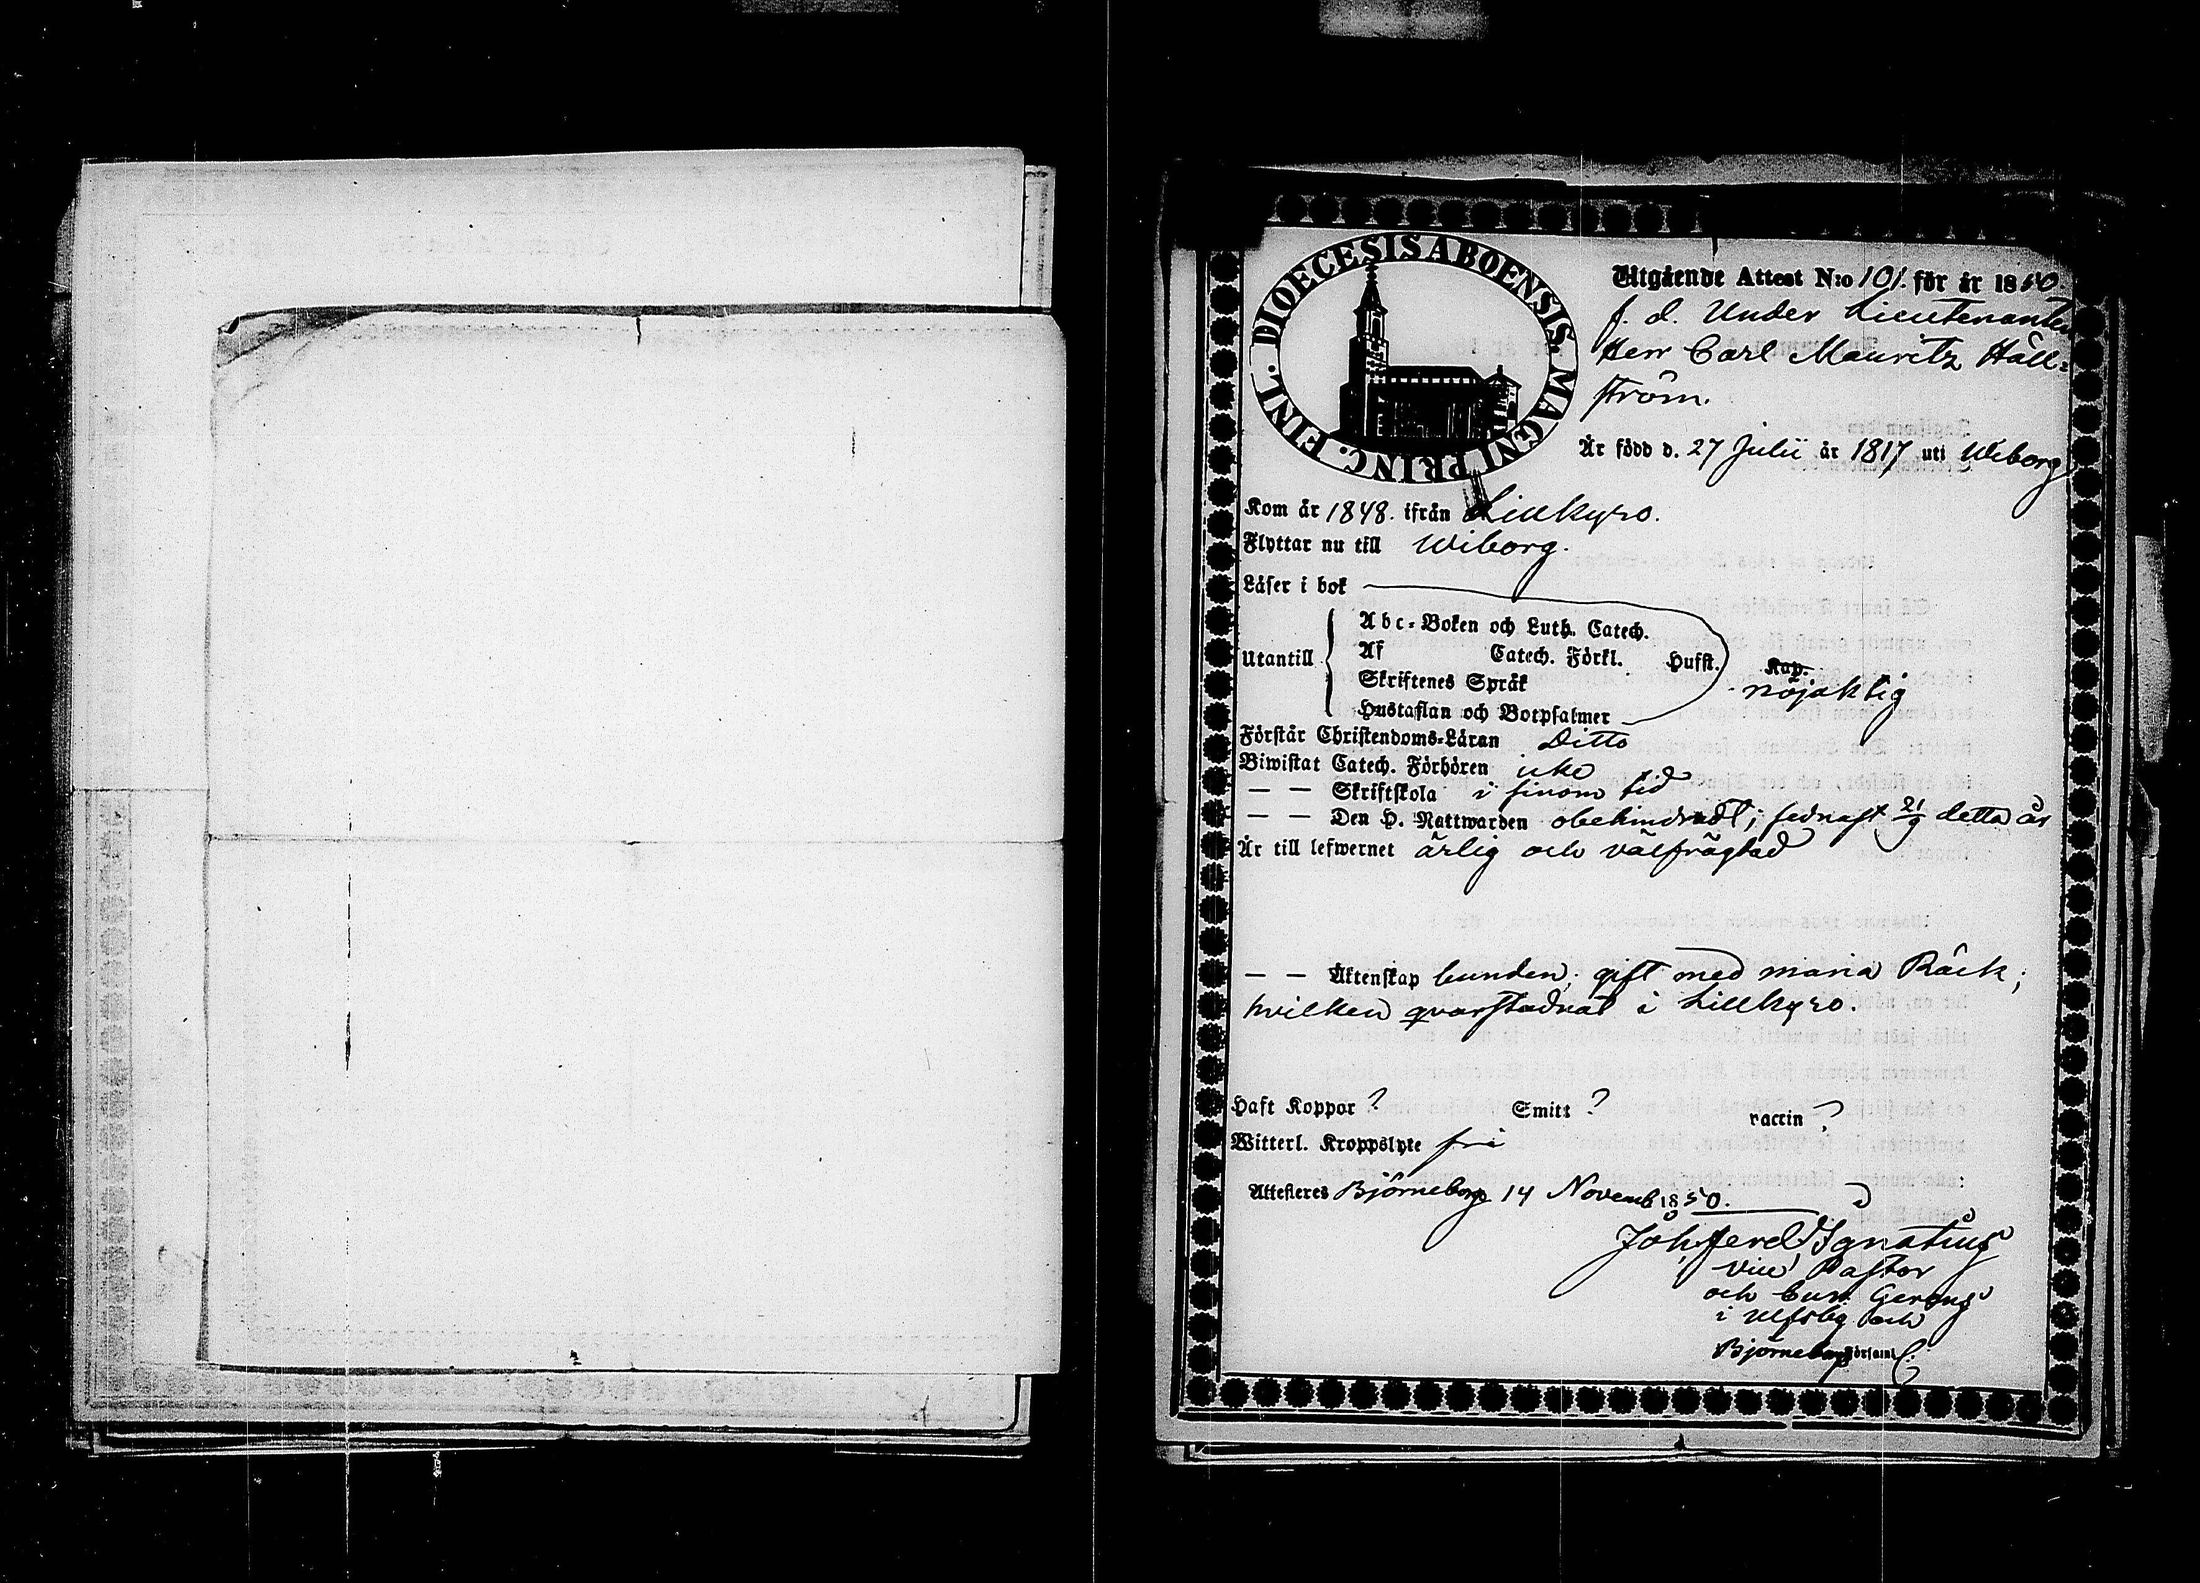 DIOECESIS ABOENSIS. MAGNI PRINC. FINL.
Utgående Attest N:o 101. för år 1850.
f. d. Under Lieutenanten
Herr Carl Mauritz Häll=
ström.
Är född d. 27 Julii år 1817 uti Wiborg
Kom år 1848. ifrån Lillkyro.
Flyttar nu till Wiborg.
Läser i bok
Utantill
Abc-Boken och Luth. Catech.
Af Catech. Förkl. Hufst. Kap.
Skriftenes Språk nöjaktig
Hustaflan och Botpsalmer
Förstår Christendoms-Läran Ditto
Biwistat Catech. Förhören icke
— — Skriftskola i sinom tid
— — Den H. Nattwarden obehindradt; sednast 21/9 detta år
Är till lefwernet ärlig och välfrägdad
— — Äktenskap bunden; gift med Maria Bäck;
hvilken qvarstadnat i Lillkyro.
Haft Koppor ? Smitt ? vaccin ?
Witterl. Kroppslyte fri
Attesteras Björneborg 14 Novemb 1850.
Joh. Ferd. Ignatius
vice Pastor
och Cur. Gerens
i Ulfsby och
Björneborg Församl.